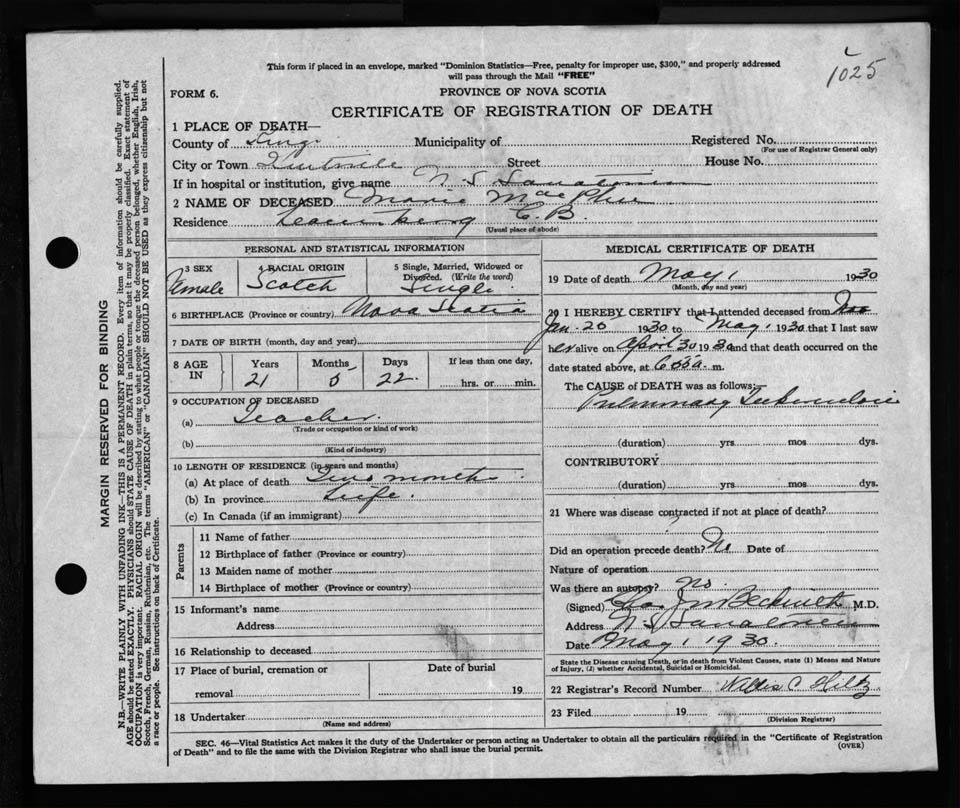 1025
This form if placed in an envelope, marked "Dominion Statistics—Free, penalty for improper use, $300," and properly addressed
will pass through the Mail "FREE"
FORM 6.
PROVINCE OF NOVA SCOTIA
CERTIFICATE OF REGISTRATION OF DEATH
1 PLACE OF DEATH—
County of Kings Municipality of Registered No.
(For use of Registrar General only)
City or Town Kentville Street House No.
If in hospital or institution, give name N. S. Sanatorium
2 NAME OF DECEASED Marie Mac
Residence C. B.
(Usual place of abode)
PERSONAL AND STATISTICAL INFORMATION
3 SEX
Female
4 RACIAL ORIGIN
Scotch
5 Single, Married, Widowed or
Divorced. (Write the word)
Single
6 BIRTHPLACE (Province or country) Nova Scotia
7 DATE OF BIRTH (month, day and year)
8 AGE IN
Years Months Days
21 5 22
If less than one day,
hrs. or min.
9 OCCUPATION OF DECEASED
(a) Teacher
(Trade or occupation or kind of work)
(b)
(Kind of industry)
10 LENGTH OF RESIDENCE (in years and months)
(a) At place of death months
(b) In province Life
(c) In Canada (if an immigrant)
Parents
11 Name of father
12 Birthplace of father (Province or country)
13 Maiden name of mother
14 Birthplace of mother (Province or country)
15 Informant's name
Address
16 Relationship to deceased
17 Place of burial, cremation or
removal
Date of burial
19
18 Undertaker
(Name and address)
MEDICAL CERTIFICATE OF DEATH
19 Date of death May 1 1930
(Month, day and year)
20 I HEREBY CERTIFY that I attended deceased from
Jan. 20 1930 to May 1 1930 that I last saw
her alive on April 30 1930 and that death occurred on the
date stated above, at a. m.
The CAUSE of DEATH was as follows:
Pulmonary Tuberculosis
(duration) yrs. mos. dys.
CONTRIBUTORY
(duration) yrs. mos. dys.
21 Where was disease contracted if not at place of death?
Did an operation precede death? No Date of
Nature of operation
Was there an autopsy? No
(Signed) M.D.
Address N. S. Sanatorium
Date May 1 1930
State the Disease causing Death, or in death from Violent Causes, state (1) Means and Nature
of Injury, (2) whether Accidental, Suicidal or Homicidal.
22 Registrar's Record Number Willis C Hiltz
23 Filed 19
(Division Registrar)
SEC. 46—Vital Statistics Act makes it the duty of the Undertaker or person acting as Undertaker to obtain all the particulars required in the "Certificate of Registration
of Death" and to file the same with the Division Registrar who shall issue the burial permit.
(OVER)
MARGIN RESERVED FOR BINDING
N.B.—WRITE PLAINLY WITH UNFADING INK—THIS IS A PERMANENT RECORD. Every item of information should be carefully supplied.
AGE should be stated EXACTLY. PHYSICIANS should STATE CAUSE OF DEATH in plain terms, so that it may be properly classified. Exact statement of
OCCUPATION is very important. RACIAL ORIGIN will be described by stating to what people or tongue the deceased person belonged, whether English, Irish,
Scotch, French, German, Russian, Ruthenian, etc. The terms "AMERICAN" or "CANADIAN" SHOULD NOT BE USED as they express citizenship but not
a race or people. See instructions on back of Certificate.